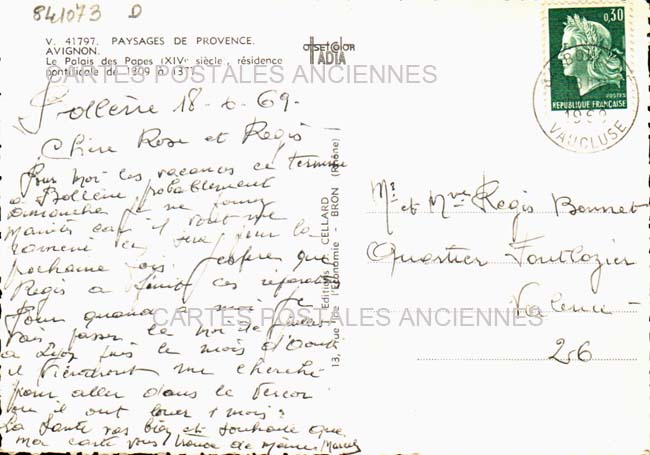 841073 D
V. 41797. PAYSAGES DE PROVENCE.
AVIGNON.
Le Palais des Papes (XIVe siècle, résidence
pontificale de 1309 à 1377
OFFSET COLOR
IADTA
0,30
POSTES
REPUBLIQUE FRANÇAISE
VAUCLUSE
CARTES POSTALES ANCIENNES
Bollène 18-6-69-
Chère Rose et Régis
Pour moi les vacances se termine
à Bollène probablement
dimanche
car il vont me
ramené pour la
prochaine fois j'espère que
Régis a finit ces réparation
Pour quand à moi je
vais passer le moi de juillet
à Lyon puis le mois d'Août
il viendront me cherché
pour aller dans le Vercor
ou il ont louer 1 mois
La Santé vas bien et souhaite que
ma carte vous trouve de même
Editions J. CELLARD
13, rue de l'Economie - BRON (Rhône)
Mr et Mme Régis Bonnet
Quartier Fontlozier
Valence
26
CARTES POSTALES ANCIENNES